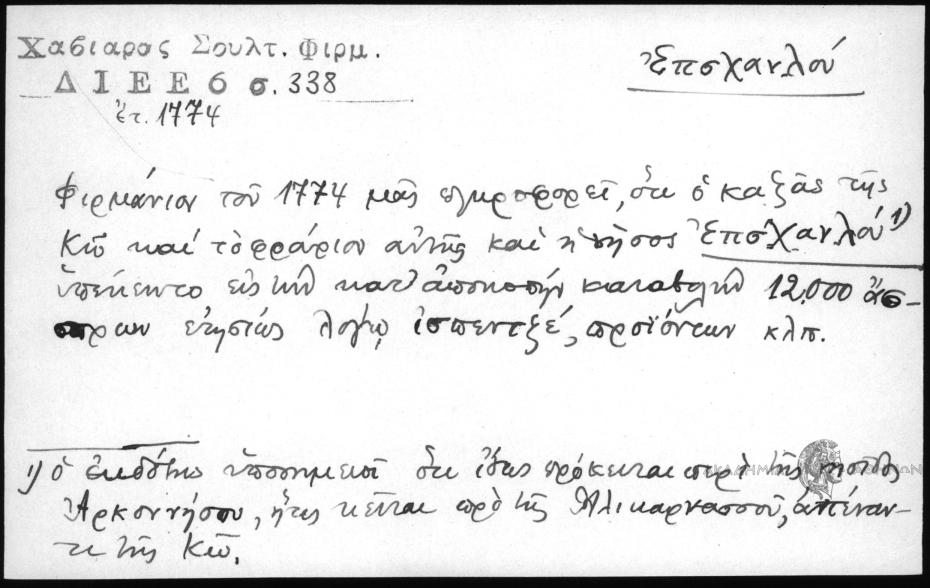 Χασιαρας Σουλτ. Φιρμ.
Δ Ι Ε Ε 6 σ. 338
ἔτ. 1774
Ἐπσχανλού
Φιρμάνιον τοῦ 1774 μᾶς πληροφορεῖ, ὅτι ὁ καζᾶς τῆς
Κῶ καί τὸ φρούριον αὐτῆς καὶ ἡ νῆσος Ἐπσχανλού 1)
ὑπέκειντο εἰς τὴν κατ' ἀποκοπήν καταβολήν 12,000 ἄσ-
πρων ἐτησίως λόγῳ ἰσπεντζέ, προϊόντων κλπ.
1) ὁ ἐκδότης ὑποσημειοῖ ὅτι ἴσως πρόκειται περὶ τῆς νησῖδος
Ἀρκοννήσου, ἥτις κεῖται πρὸ τῆς Ἁλικαρνασσοῦ, ἀπέναν-
τι τῆς Κῶ.